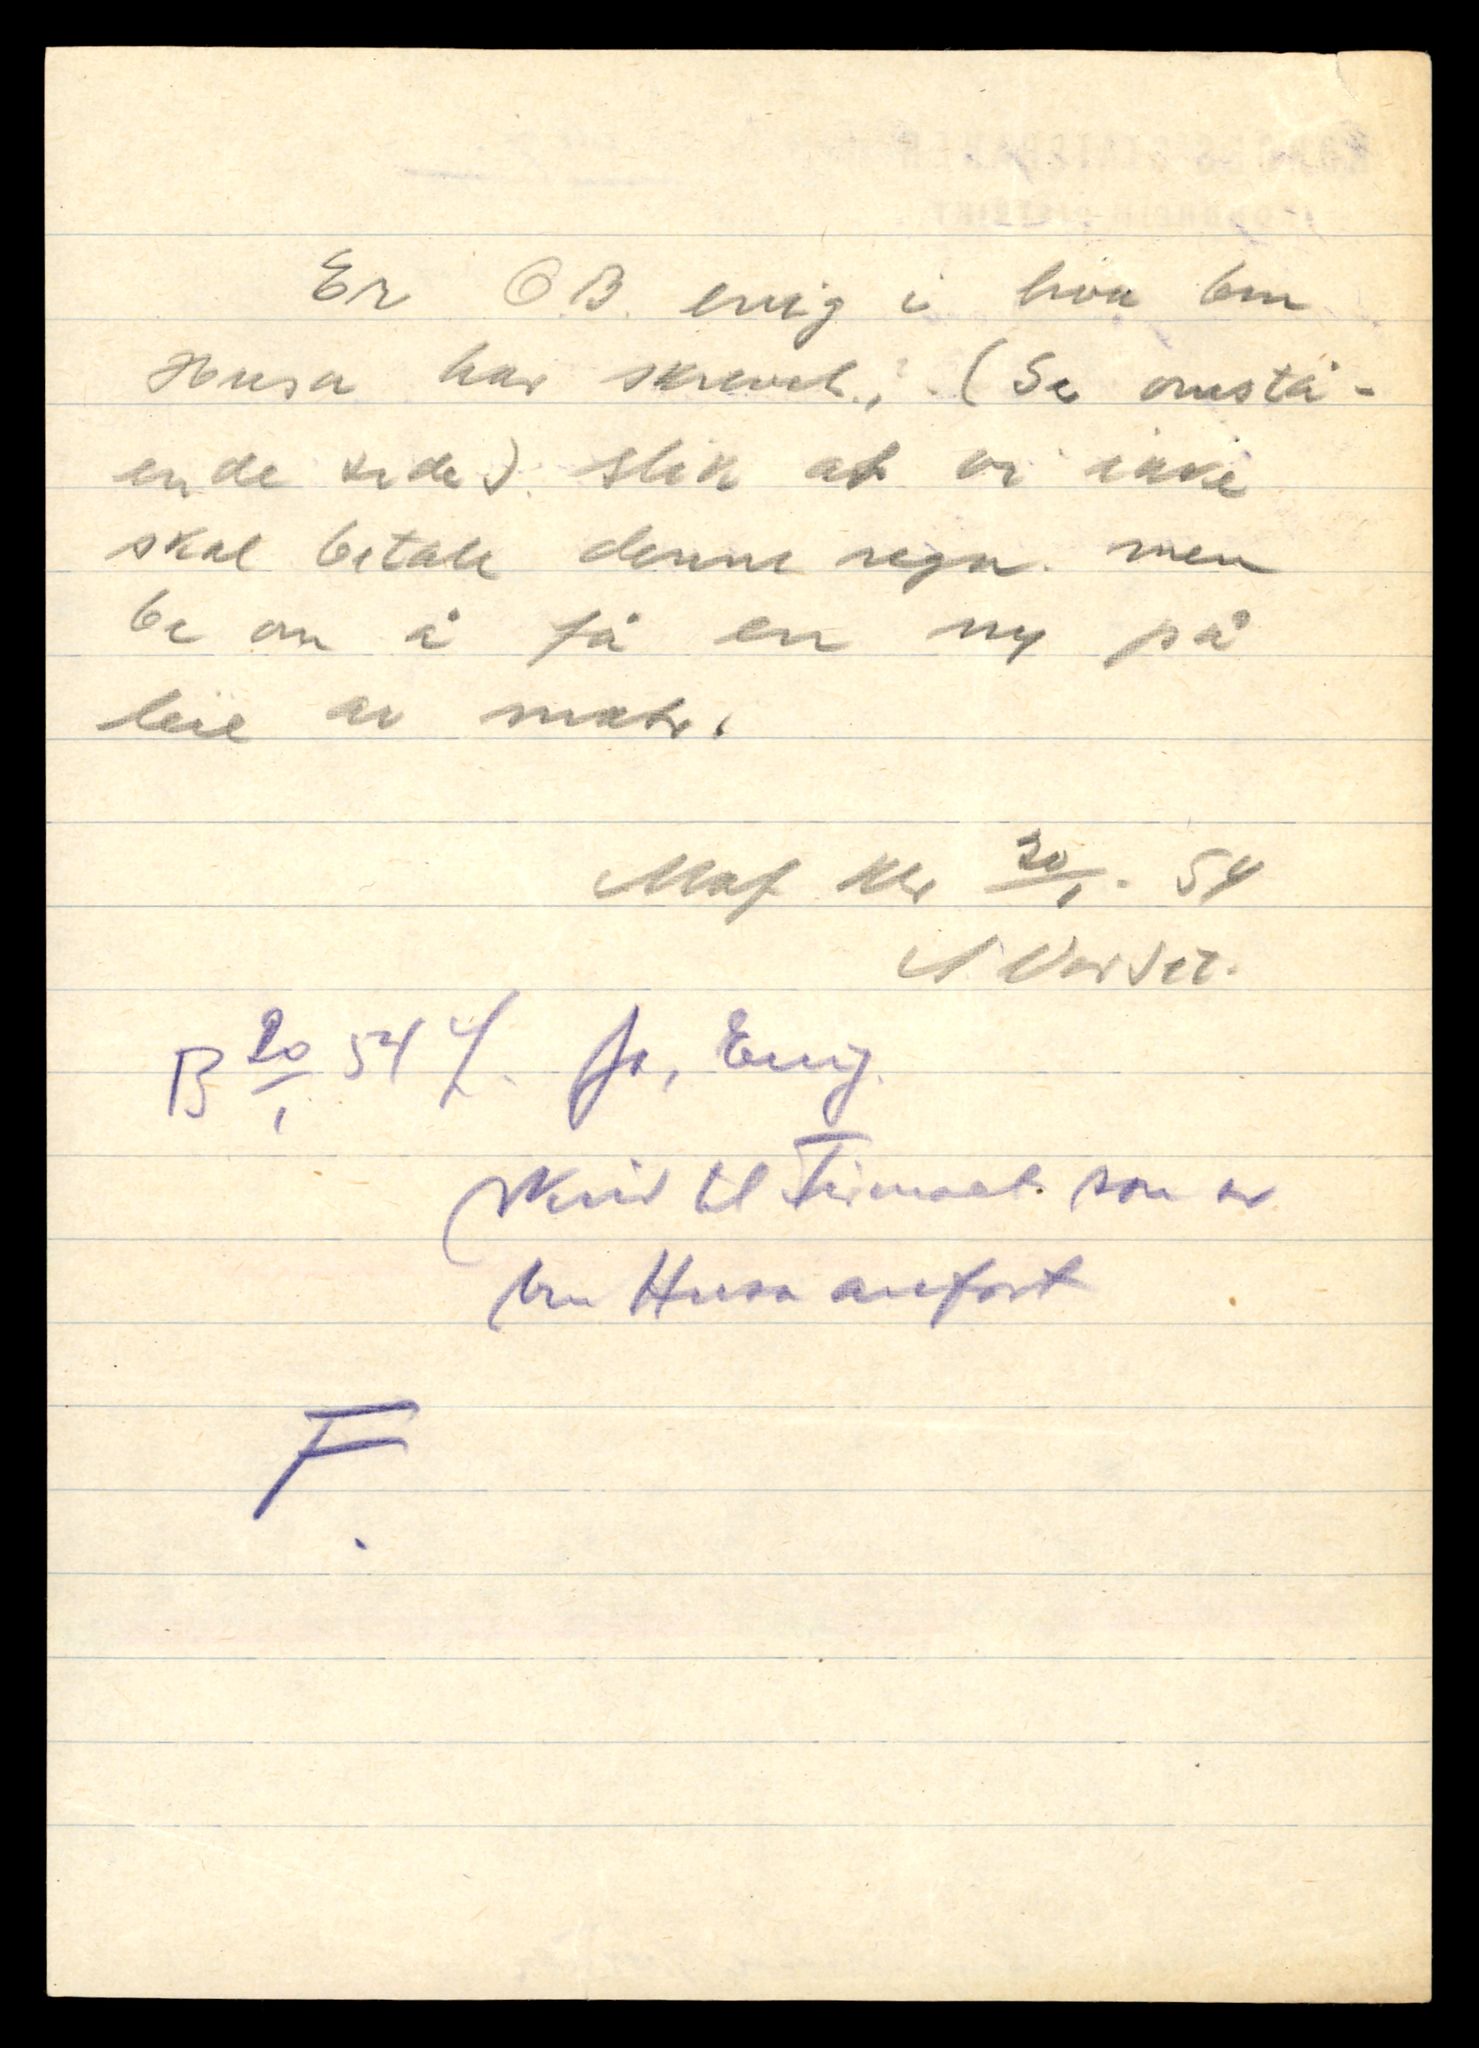 Er O B. enig i hva bm
Husa har skrevet., (Se omstå-
ende side). slik at vi ikke
skal betale denne regn. men
be om å få en ny på
leie av matr.
20/1. 54
B 20/1 54 Ja, Enig.
Skriv til Firmaet. som av
bm Husa anfört
F.